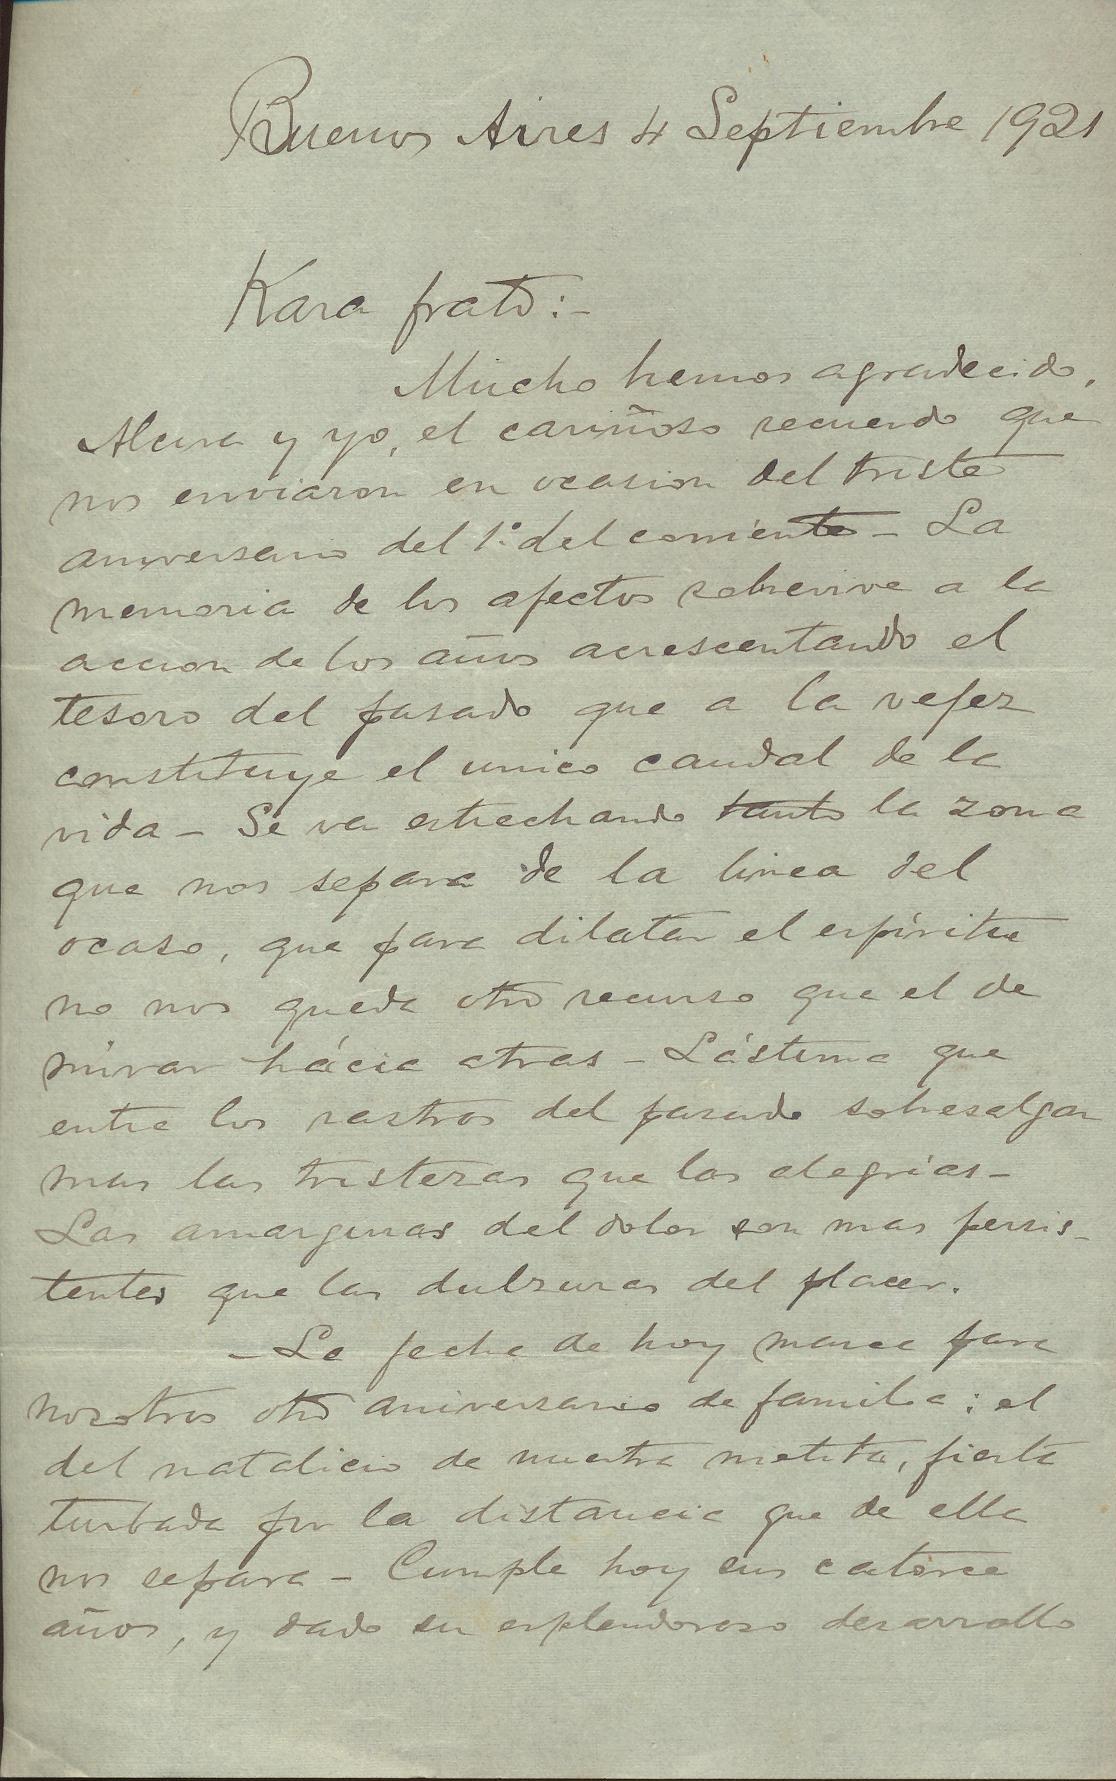 Buenos Aires 4 Septiembre 1921
Kara frato:-
Mucho hemos agradecido,
y yo, el cariñoso recuerdo que
nos enviaron en ocasion del triste
aniversario del 1º. del corriente - La
memoria de los afectos sobrevive a la
accion de los años acrescentando el
tesoro del pasado que a la vejez
constituye el unico caudal de la
vida - Se va estrechando tanto la zona
que nos separa de la linea del
ocaso, que para dilatar el espíritu
no nos queda otro recurso que el de
mirar hácia atras - Lástima que
entre los rastros del pasado sobresalgan
mas las tristezas que las alegrías -
Las amarguras del dolor son mas persis-
tentes que las dulzuras del placer.
- La fecha de hoy marca para
nosotros otro aniversario de familia: el
del natalicio de nuestra nietita, fiesta
turbada por la distancia que de ella
nos separa - Cumple hoy sus catorce
años, y dado su esplendoroso desarrollo